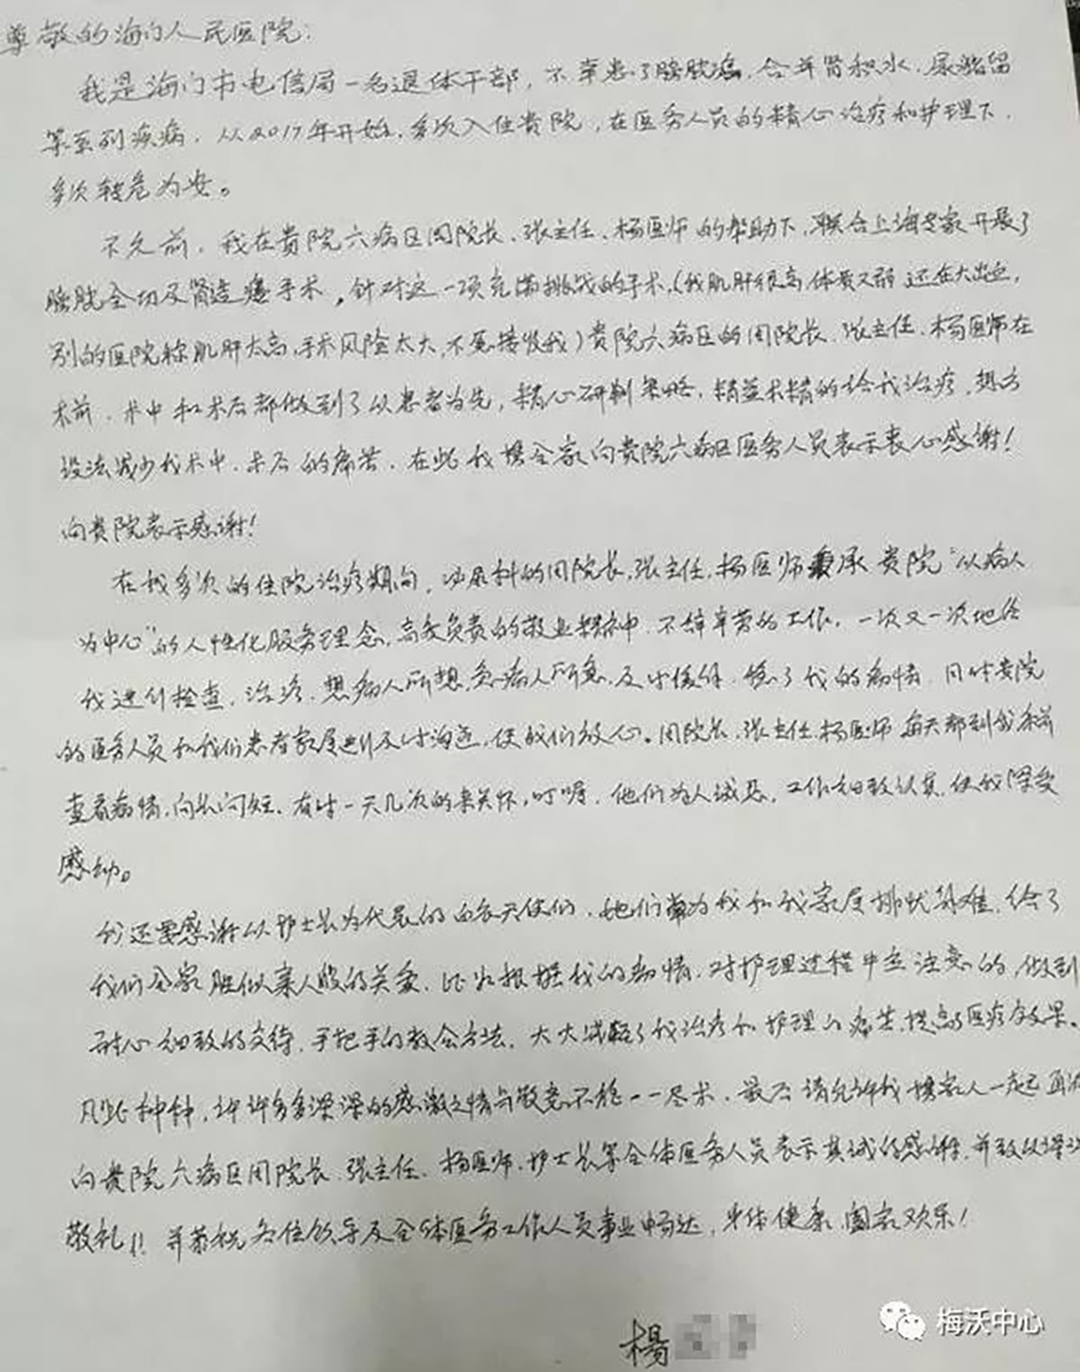 尊敬的海门人民医院：
我是海门市电信局一名退休干部，不幸患了膀胱癌，合并肾积水、尿潴留
等系列疾病，从2017年开始，多次入住贵院，在医务人员的精心治疗和护理下，
多次转危为安。
不久前，我在贵院六病区周院长、张主任、杨医师的帮助下，联合上海专家开展了
膀胱全切及肾造瘘手术，针对这一项充满挑战的手术，（我肌肝很高，体质又弱，还在大出血，
别的医院称肌肝太高，手术风险太大，不愿接收我）贵院六病区的周院长、张主任、杨医师在
术前、术中和术后都做到了以患者为先，精心研判策略，精益求精的给我治疗，想方
设法减少我术中、术后的痛苦，在此我携全家向贵院六病区医务人员表示衷心感谢！
向贵院表示感谢！
在我多次的住院治疗期间，泌尿科的周院长、张主任、杨医师秉承贵院“以病人
为中心”的人性化服务理念，高度负责的敬业精神，不辞辛劳的工作，一次又一次地给
我进行检查、治疗，想病人所想，急病人所急，及时缓解、稳了我的病情，同时贵院
的医务人员和我们患者家属进行及时沟通，使我们放心。周院长、张主任、杨医师每天都到我床前
查看病情，问长问短，有时一天几次的来关怀，叮嘱，他们为人诚恳，工作细致认真，使我深受
感动。
我还要感谢以护士长为代表的白衣天使们，她们为我和我家属排忧解难，给了
我们全家胜似亲人般的关爱，比如根据我的病情，对护理过程中应注意的，做到
耐心细致的交待，手把手的教会方法，大大减轻了我治疗和护理的痛苦，提高了医疗效果。
凡此种种，许许多多深深的感激之情与敬意不能一一尽术，最后请允许我携家人一起再次
向贵院六病区周院长、张主任、杨医师、护士长等全体医务人员表示真诚的感谢，并致以深深
敬礼！！并恭祝各位领导及全体医务工作人员事业畅达，身体健康，阖家欢乐！
楊
梅沃中心